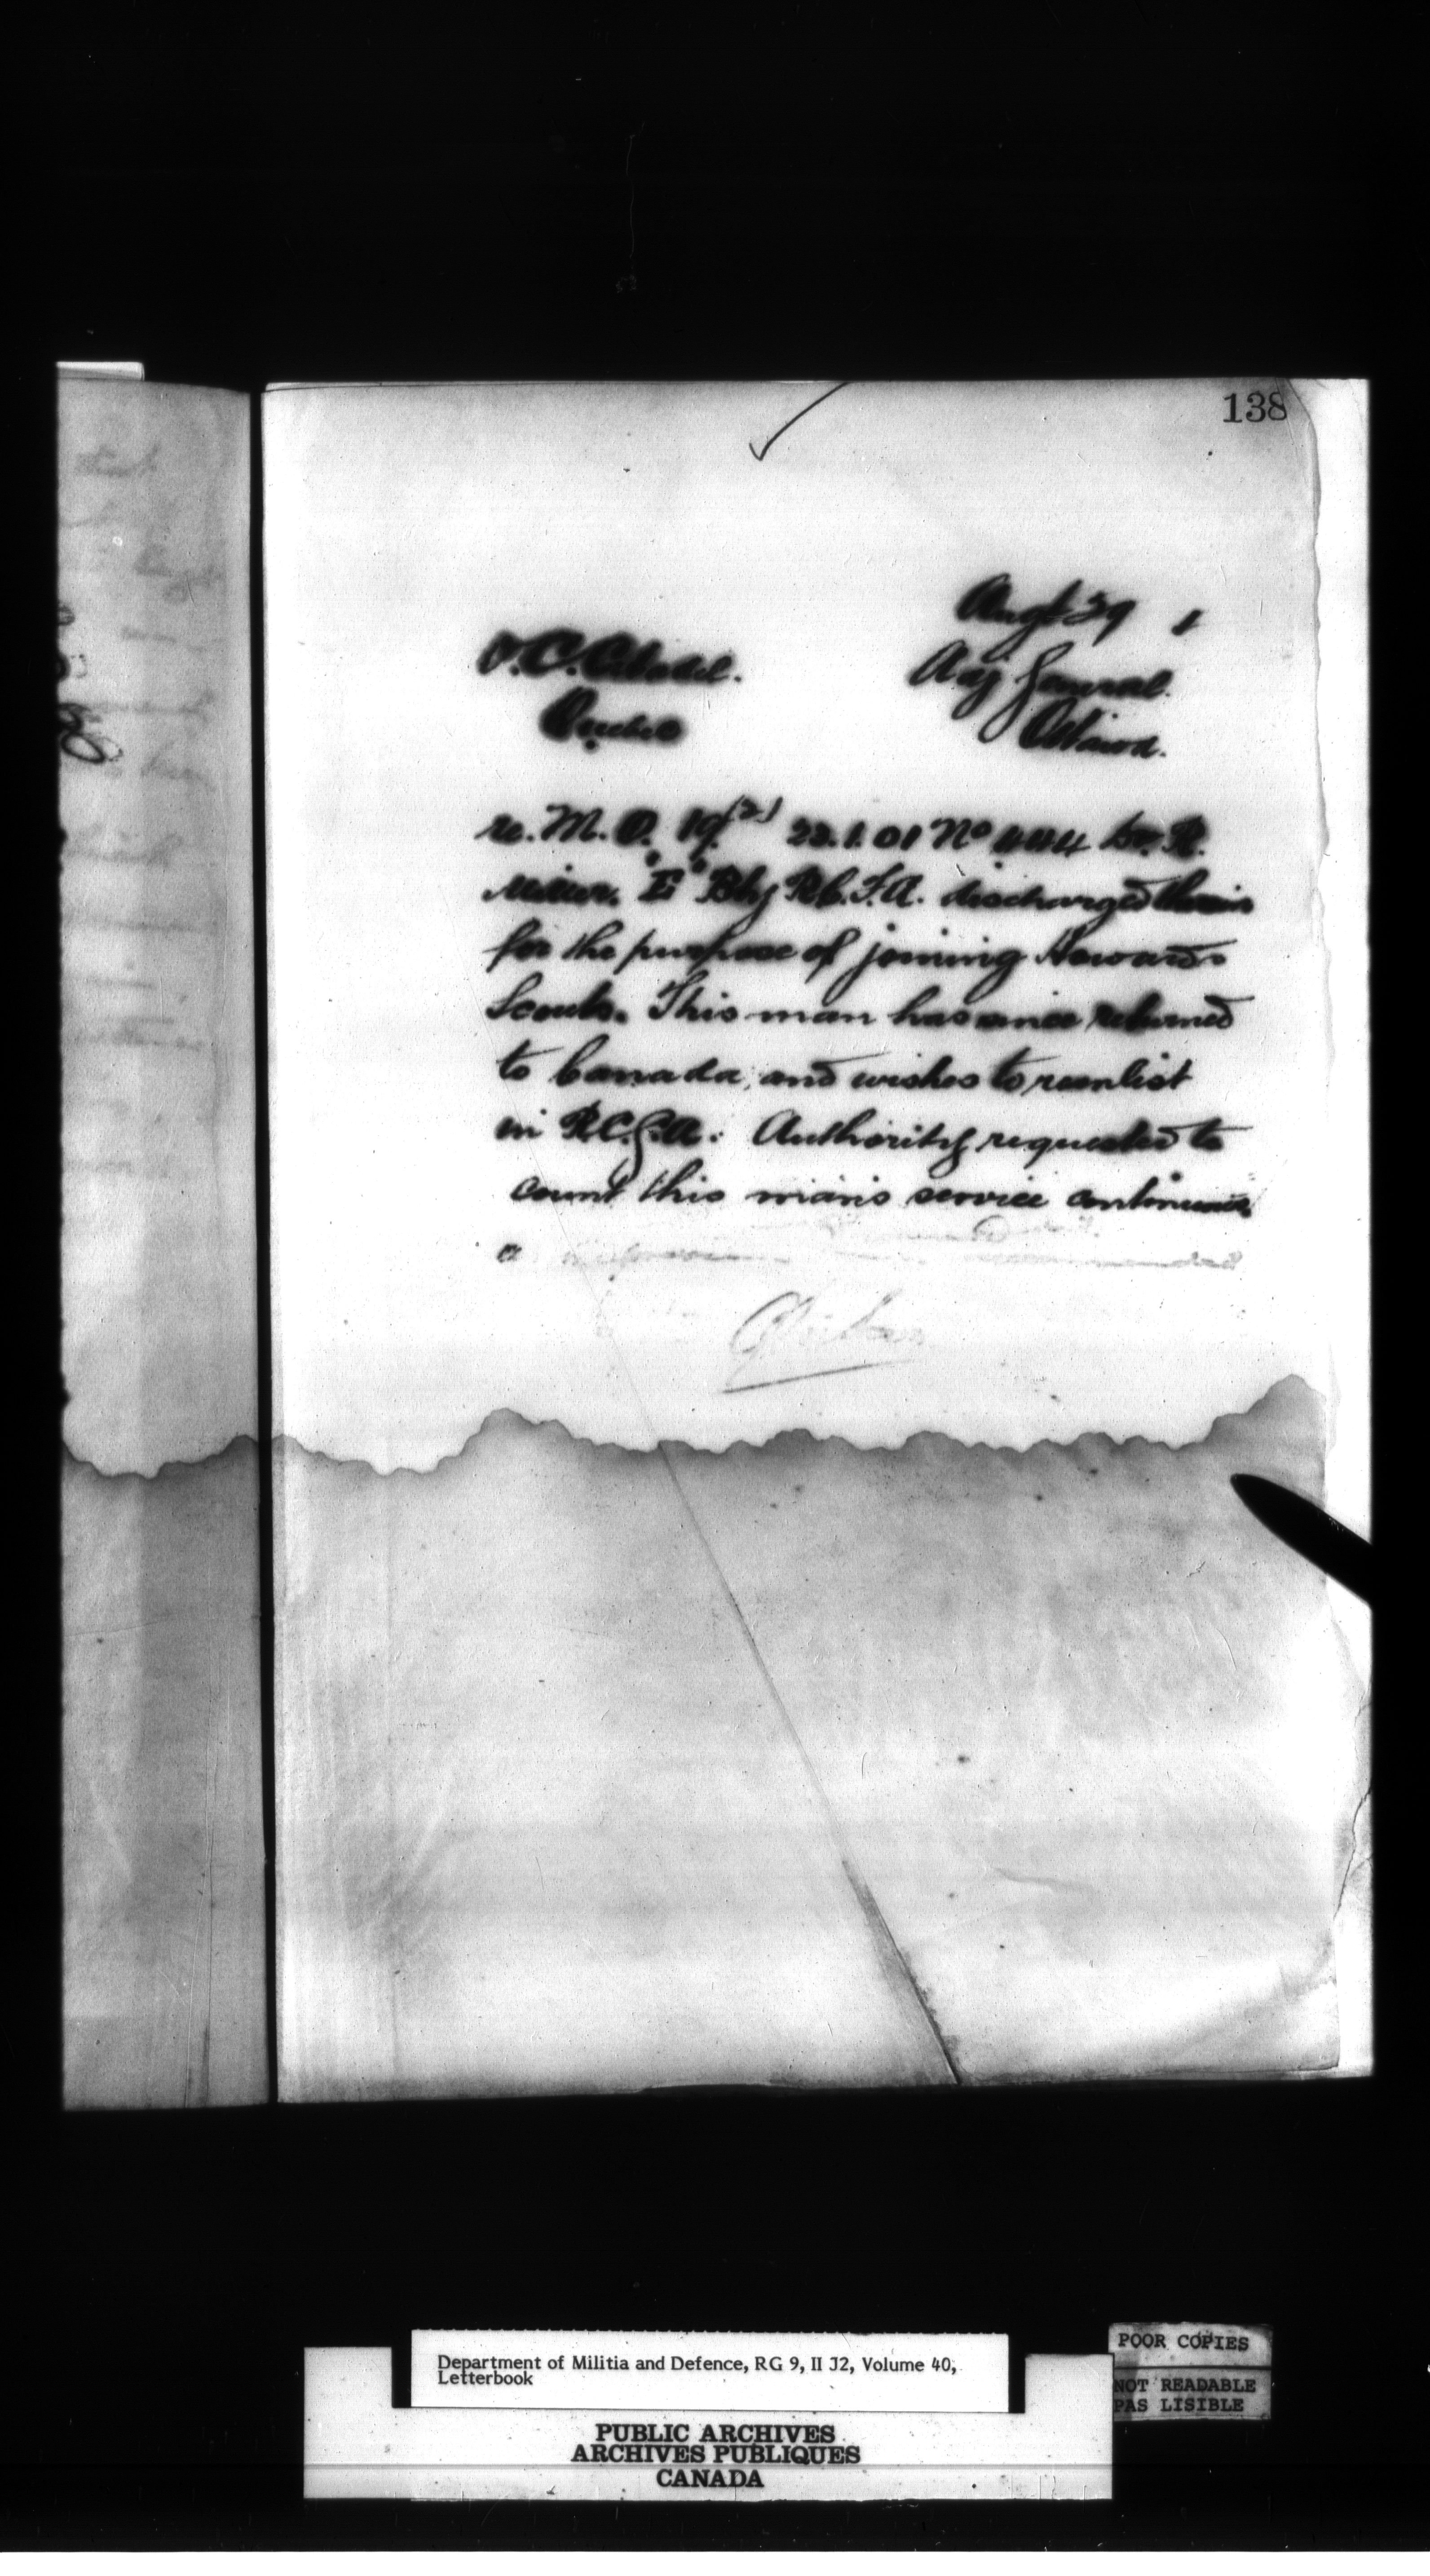 138
Augt 29 1
O.C. Citadel.
Adj General.
Quebec
Ottawa.
re. M. O. 19(2) 22.1.01 No 444 Dr. R.
"E" Bty R.C.F.A. discharged
for the purpose of joining Howards
Scouts. This man has since returned
to Canada, and wishes to reenlist
in R.C.G.A. Authority requested to
count this man's service
Department of Militia and Defence, RG 9, II J2, Volume 40,
Letterbook
PUBLIC ARCHIVES
ARCHIVES PUBLIQUES
CANADA
POOR COPIES
NOT READABLE
PAS LISIBLE